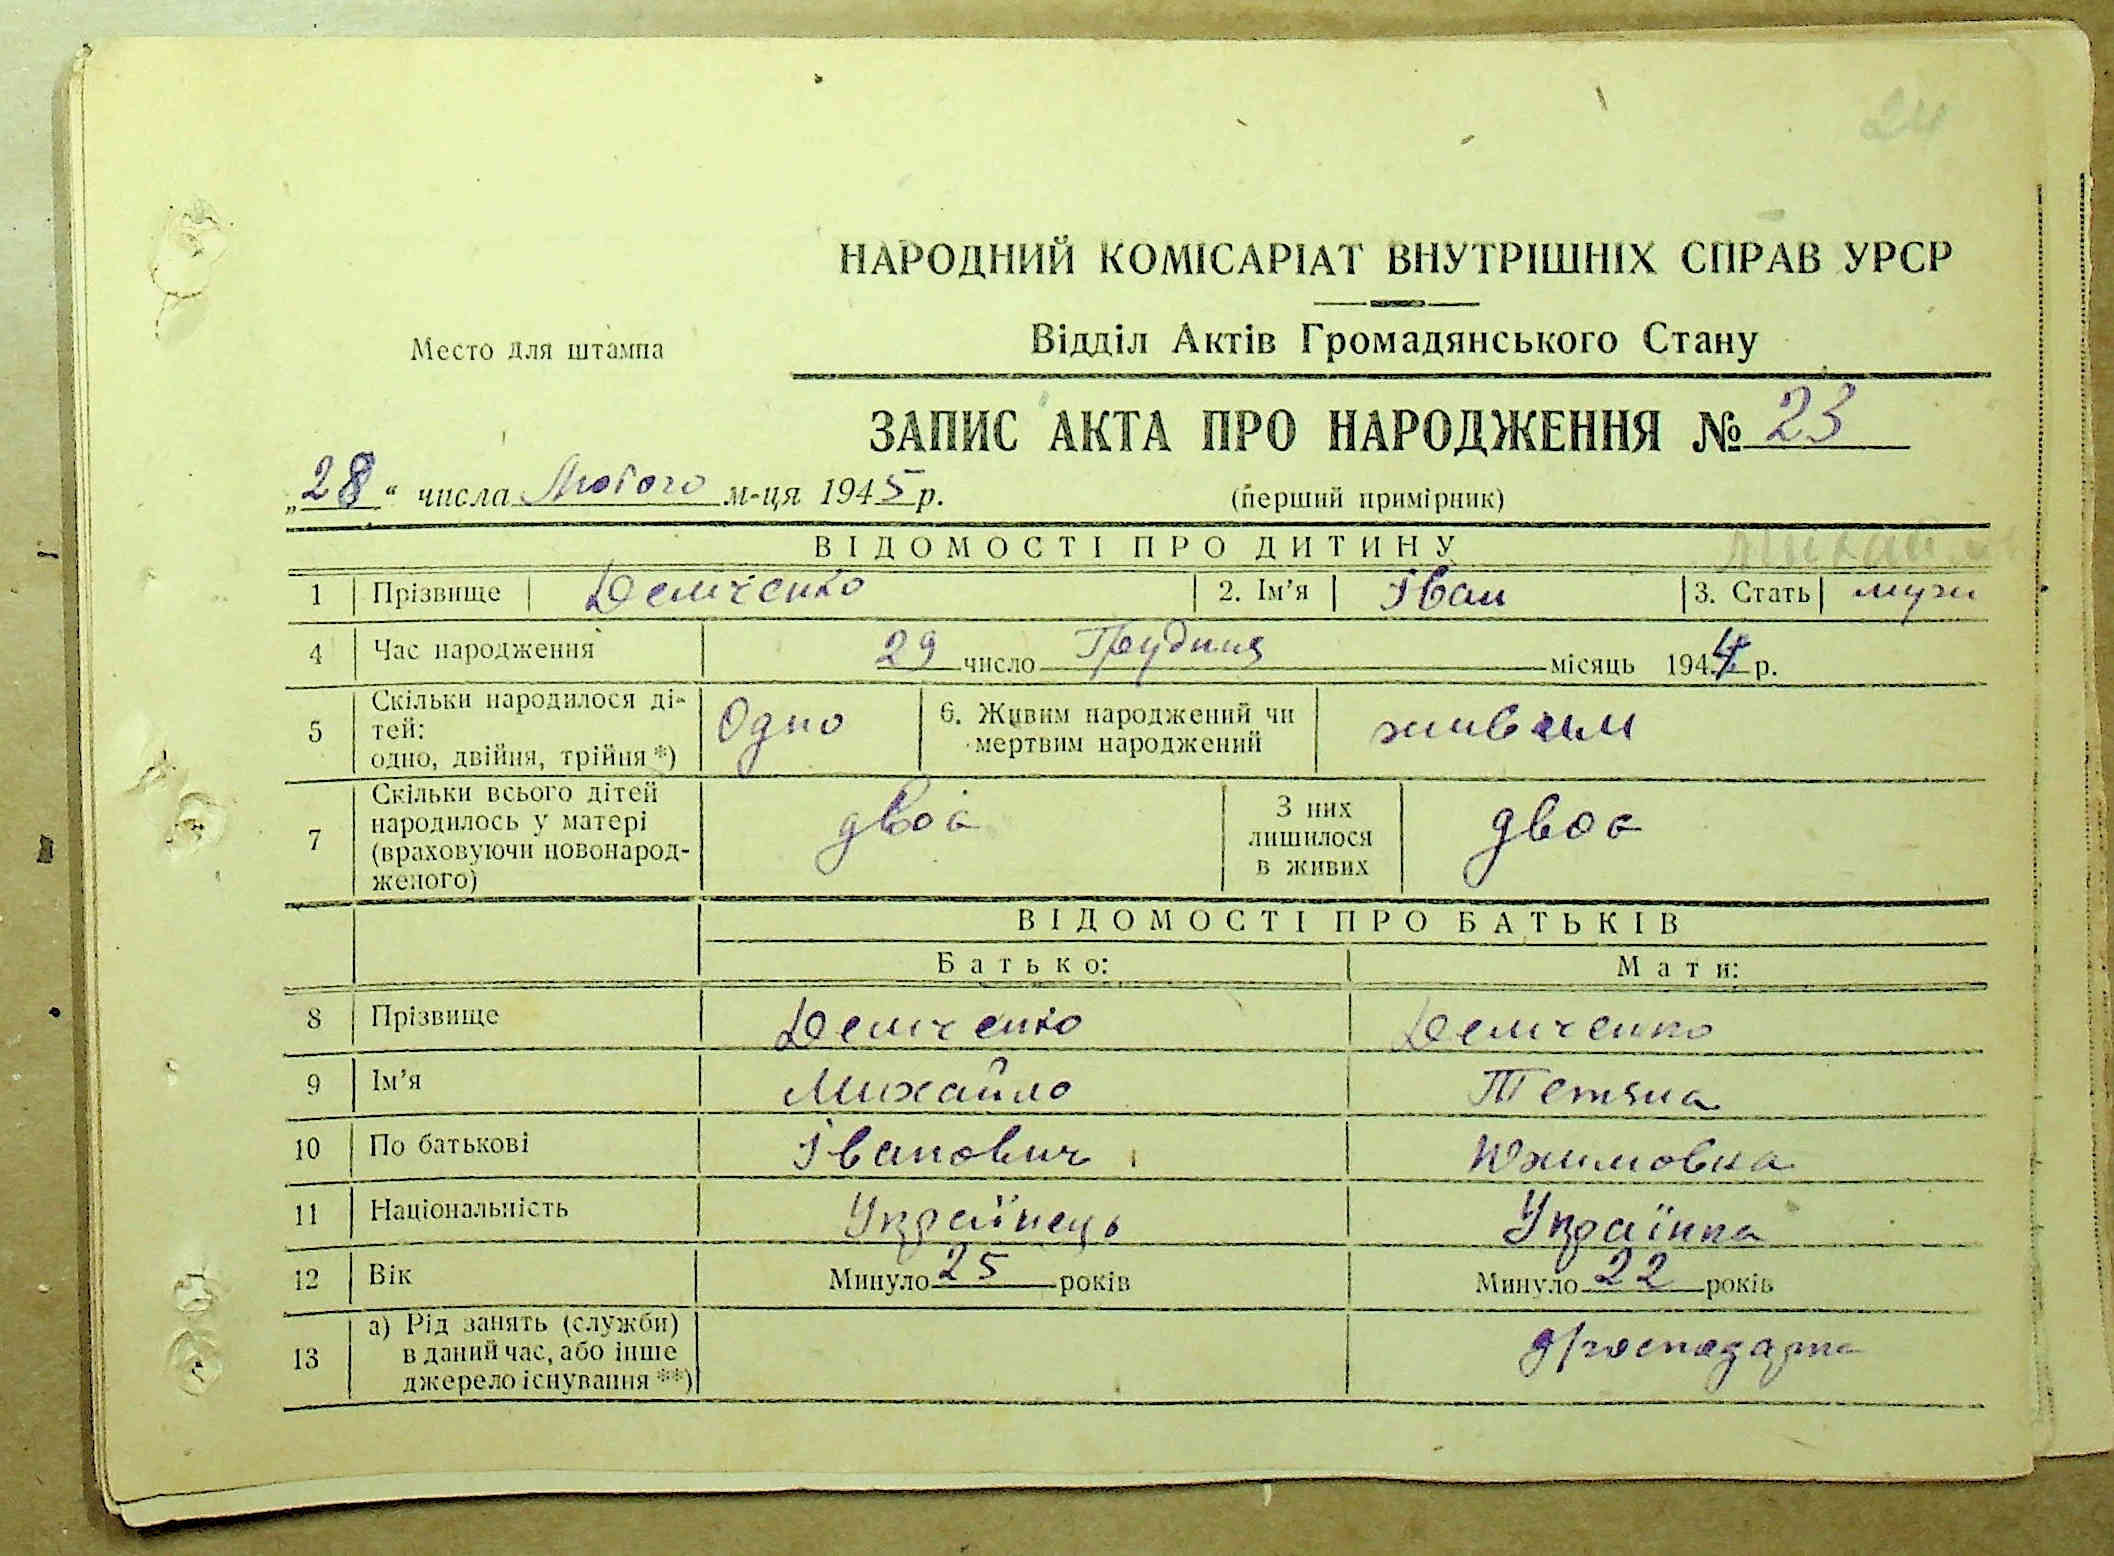 24
НАРОДНИЙ КОМІСАРІАТ ВНУТРІШНІХ СПРАВ УРСР
Место для штампа
Відділ Актів Громадянського Стану
ЗАПИС АКТА ПРО НАРОДЖЕННЯ № 23
„28“ числа Лютого м-ця 1945 р.
(перший примірник)
ВІДОМОСТІ ПРО ДИТИНУ
1 Прізвище Демченко 2. Ім’я Іван 3. Стать мужч
4 Час народження 29 число Грудния місяць 1944 р.
5 Скільки народилося ді-
тей:
одно, двійня, трійня *) Одно
6. Живим народжений чи
мертвим народжений живим
7 Скільки всього дітей
народилось у матері
(враховуючи новонарод-
женого) двоє
З них
лишилося
в живих двоє
ВІДОМОСТІ ПРО БАТЬКІВ
Батько: Мати:
8 Прізвище Демченко Демченко
9 Ім’я Михайло Тетяна
10 По батькові Іванович Юхимовна
11 Національність Українець Українка
12 Вік Минуло 25 років Минуло 22 років
13 а) Рід занять (служби)
в даний час, або інше
джерело існування **)